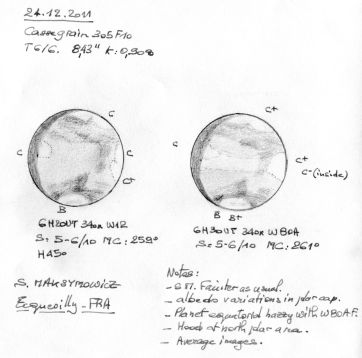 24.12.2011
Cassegrain 305F10
T6/6. 8,43" K:0,908
C
C
C
C+
B
C+
C+
C-(inside)
B B+
6H20UT 340x W12
S: 5-6/10 MC: 259°
6H30UT 340x W80A
S: 5-6/10 MC: 261°
S. MAKSYMOWICZ
Ecquevilly - FRA
Notes:
- Fainter as usual.
- albedo variations in polar cap.
- Planet equatorial hazzy with W80A F.
- Hood at north polar area.
- Average images.